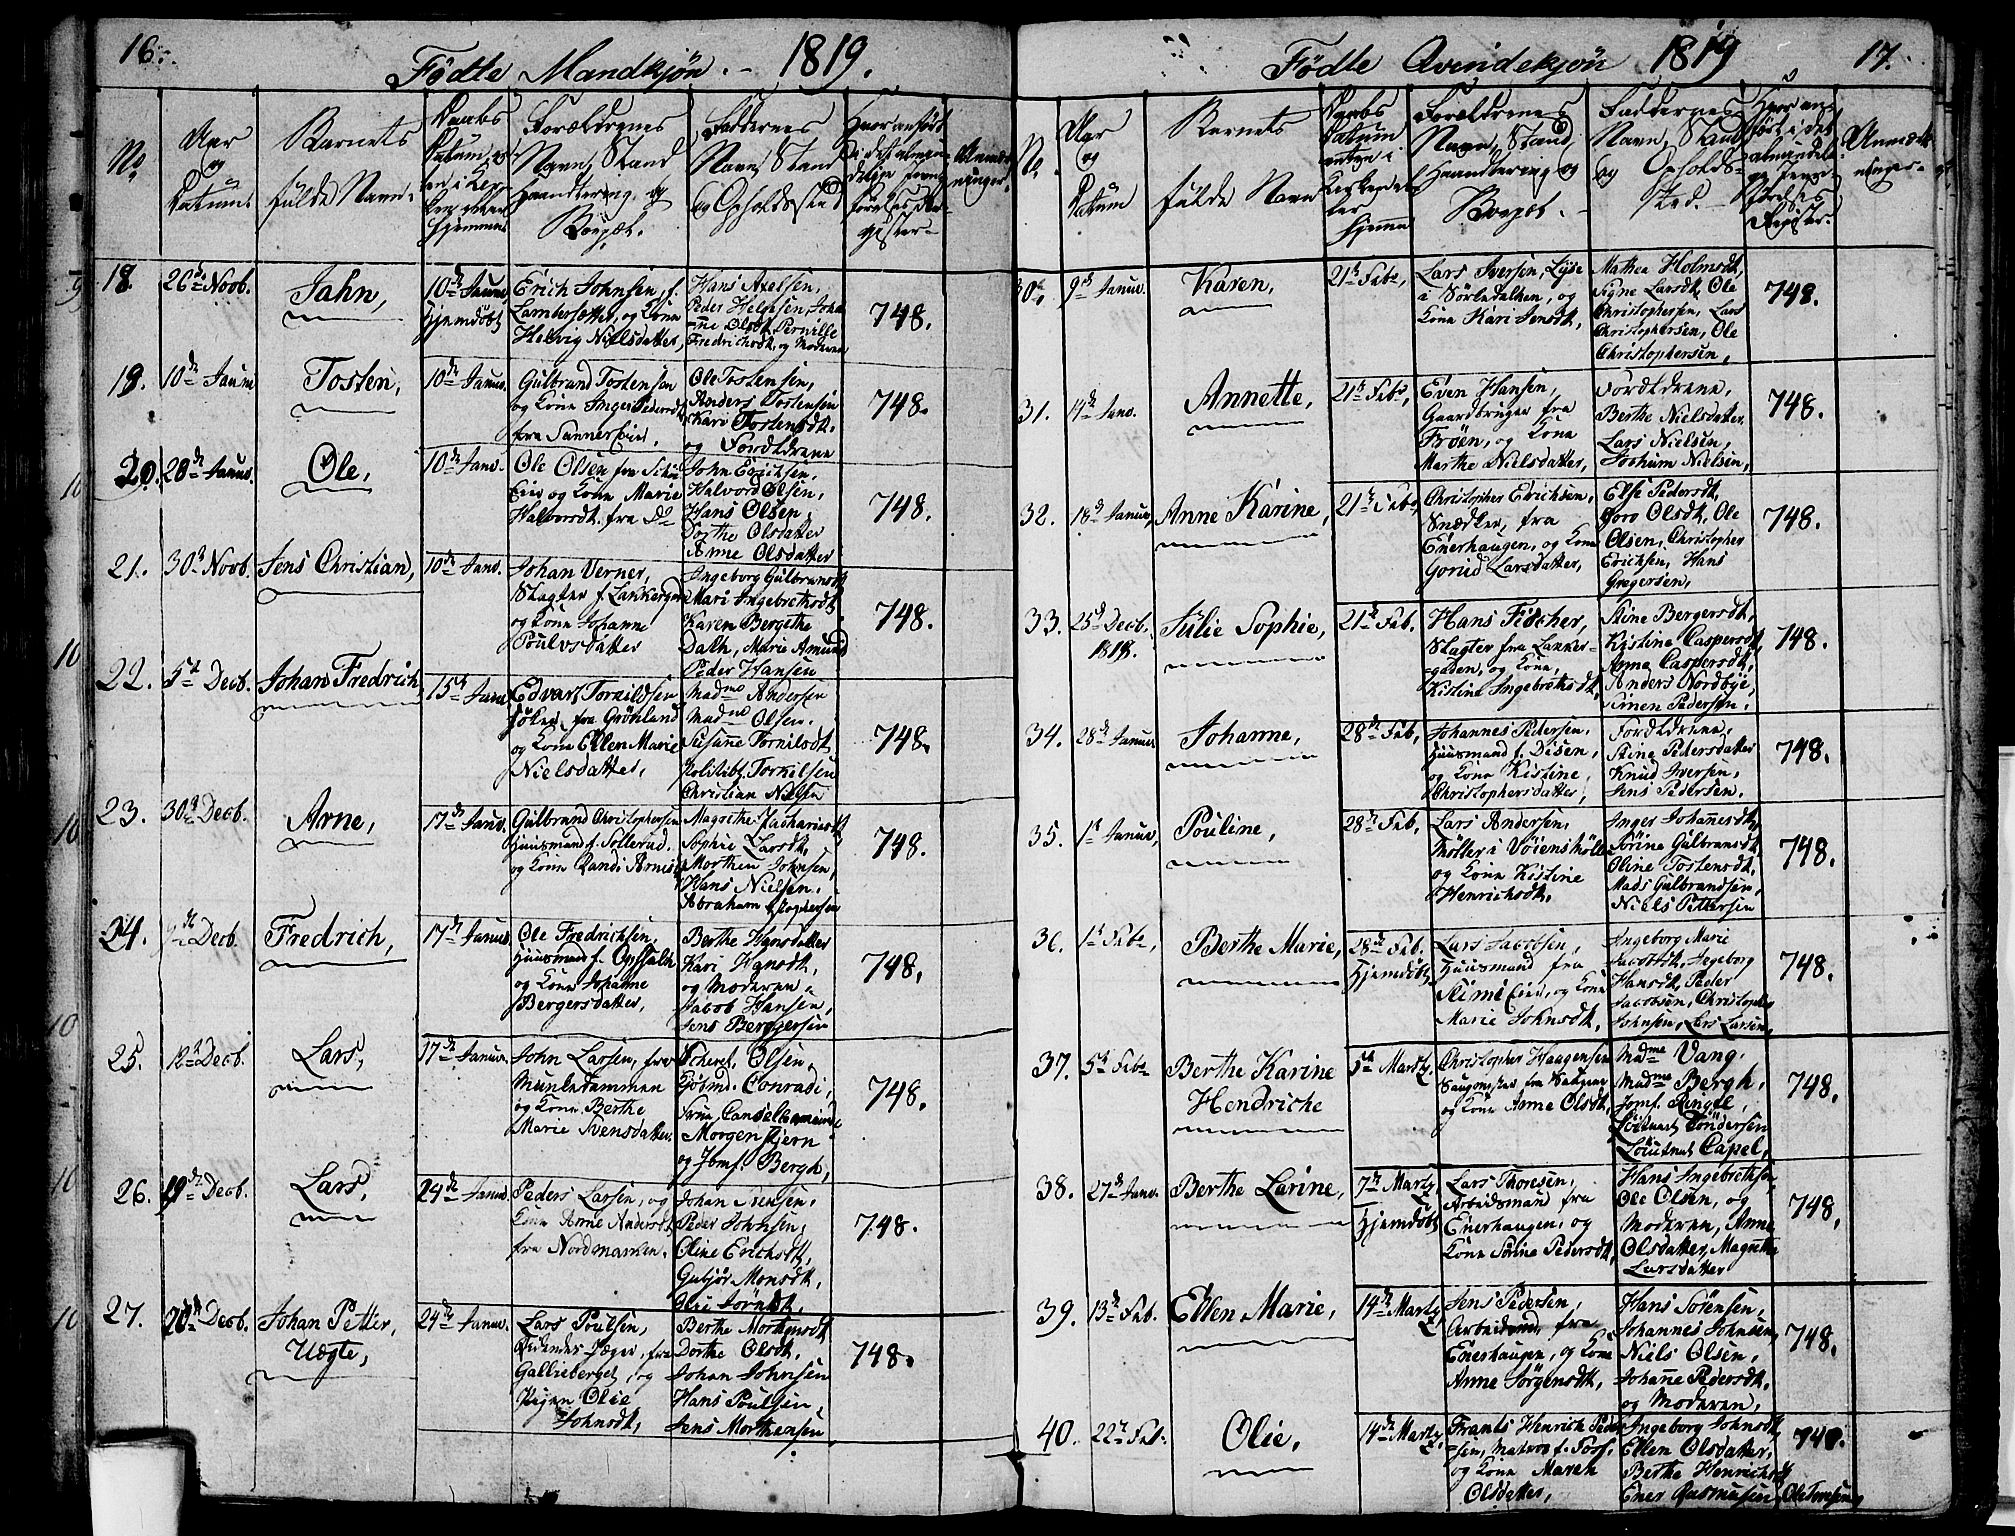 16.
Födte Mandkjön. - 1819.
No
Aar og Datum
Barnets fülde Navn.
Daabs Datum
Forældrenes Navn, Stand Haandtering og Bopæl.
Faddernes Navn, Stand og Opholdssted
Hvor anført i det almindelige Jevnførelses Register
Anmærkninger.
18. 26de Novb. Jahn, 10de Janu. Hjemdöbt
Erich Johnsen, f.
Lambersætter, og Kone
Helvig Nielsdatter,
Hans Axelsen,
Peder Helgesen, Joha
nne Olsdt, Pernille
Fredrichsdt, og Moderen
748.
19. 10de Janu Tosten, 10de Januar.
Gulbrand Tostensen
og Kone Inger Pedersdt
fra Sannerseie.
Ole Tostensen,
Anders Tostensen
Kari Tostensdt.
og Forældrene
748.
20. 28de Januar. Ole, 10de Janu.
Ole Olsen fra
Eie og Kone Marie
Halvorsdt. fra Do
John Erichsen,
Halvord Olsen,
Hans Olsen,
Dorthe Olsdatter
Anne Olsdatter
748.
21. 30te Novb. Jens Christian, 10de Janu.
Johan Verner,
Slagter f. Lakkergad
og Kone Johanne
Poulsdatter
Ingeborg Gulbransdt
Mari Ingebrethsdt
Karen Bergithe
Dath, Marie Amund
Peder Hansen
748.
22. 5te Decb. Johan Fredrich 15de Janu
Edvart Torkildsen
fra Grönland
og Kone Ellen Marie
Nielsdatter,
Madme Andersen
Madme Olsen.
Susanne Torkilsdt
Politibt. Torkilsen
Christian Nielsen
748.
23. 30te Decb. Arne, 17de Janu.
Gulbrand Christophersen
Huusmand f. Sollerud.
og Kone Randi Arnesdt
Magrethe Zachariasdt
Sophie Larsdt,
Morthen Johnsen,
Hans Nielsen.
Abraham
748.
24. Decb. Fredrich, 17de Januar.
Ole Fredrichsen,
Huusmand f. Opsahl
og Kone Johanne
Bergersdatter,
Berthe Hansdatter
Kari Hansdt,
og Moderen,
Jacob Hansen,
Jens Berggersen
748.
25. 12te Decb. Lars, 17de Januar.
John Larsen, fra
Munkedammen
og Kone Berthe
Marie Svensdatter.
Olsen,
Conradi,
Frue
Morgenstjern
og Jomf. Bergh,
748.
26. 19de Decb. Lars, 24de Janua
Peders Larsen, og
Kone Anne Andersdt
fra Nordmarken.
Johan
Peder Johnsen,
Oline Erichsdt,
Gubjör Monsdt,
748.
27. 20de Decb. Johan Petter, Uægte, 24de Januar.
Lars Poulsen,
Ridende Jæger, fra
Gallieberget, og
Pigen Olie
Johnsdt,
Berthe Morthensdt
Dorthe Olsdt,
Johan Johnsen
Hans Poulsen,
Jens Morthensen
748.
Födte Qvindekjön 1819 17.
No.
Aar og Datum
Barnets fülde Navn
Daabs Datum enten i Kirken eller Hjemme
Forældrenes Navn, Stand, Haandtering og Bopæl.
Faddernes Navn, Stand og Opholdssted.
Hvor anført i det almindelige Jevnførelses Register.
Anmærkninger.
30. 9de Janua. Karen, 21de Febr,
Lars Iversen, Lyse
i Sörkedalken, og
Kone Kari Jensdt,
Mathea Holmsdt,
Signe Larsdt, Ole
Christophersen, Lars
Christophersen, Ole
Christophersen,
748.
31. 14de Janu. Annette, 21de Febr,
Even Hansen,
Gaardbruger fra
Fröen, og Kone
Marthe Nielsdatter,
Forældrene,
Berthe Nielsdatter
Lars Nielsen,
Jochum Nielsen,
748.
32. 18de Januar, Anne Karine, 21de Febr
Christopher Erichsen,
Snædker, fra
Enerhaugen, og Kone
Gorud Larsdatter,
Else Pedersdt,
Goro Olsdt, Ole
Olsen, Christopher
Erichsen, Hans
Gregersen,
748.
33. 25de Decb. 1818. Julie Sophie, 21de Feb.
Hans Fischer,
Slagter fra Lakker-
gaden, og Kone,
Kistine Ingebrethsdt,
Stine Bergersdt,
Kistine Caspersdt,
Anne Caspersdt,
Anders Nordbye,
Simen Pedersen.
748.
34. 28de Januar Johanne, 28de Feb,
Johannes Pedersen,
Huusmand f. Disen,
og Kone Kistine,
Christophersdatter,
Forældrene,
Stine Pedersdatter
Knud Iversen,
Jens Pedersen.
748.
35. 1te Januar, Pouline, 28de Feb,
Lars Andersen,
Möller i Vöiensmölle
og Kone Kistine
Henrichsdt.
Inger Johannesdt,
Sörine Gulbransdt
Oline Tostensdt,
Mads Gulbrandsen,
Niels Pettersen
748.
36. 1te Febr, Berthe Marie, 28de Feb. Hjemdöbt
Lars Jacobsen,
Huusmand fra
eie, og Kone
Marie Johnsdt,
Ingeborg Marie
Jacobsdt, Ingeborg
Hansdt, Peder
Jacobsen, Christopher
Johnsen, Lars Larsen,
748.
37. 5te Febr Berthe Karine Hendriche 5te Marty
Christopher Haagensen
Saugmester fra
og Kone Anne Olsdt,
Madme Vang,
Madme Bergh,
Jomf. Ringel,
Löitnant Töndersen
Löitnant Capel,
748.
38. 27de Janu. Berthe Larine, 7de Marty, Hjemdöbt
Lars Thoresen,
Arbeidsmand fra
Enerhaugen, og
Kone Sörine Pedersdt,
Hans Ingebrethsen,
Ole Olsen, og
Moderen, Anne
Olsdatter, Magrethe
Larsdatter
748.
39. 13de Feb. Ellen Marie, 14de Marty
Jens Pedersen,
Arbeidsmd. fra
Enerhaugen, og Kone
Anne Jörgensdt,
Hans Sörensen,
Johannes Johnsen,
Niels Olsen,
Johanne Pedersdt,
og Moderen,
748.
40. 22de Feb. Olie, 14de Marty,
Frants Henrich Peder
sen, Matros f.
og Kone Maren
Olsdatter,
Ingeborg Johnsdt,
Ellen Olsdatter,
Berthe Henrichsdt
Ener Rasmusen,
748.